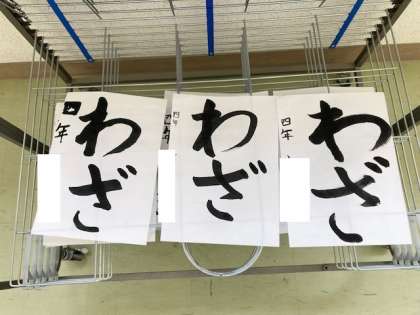 わざ
四年
わざ
四年
わざ
四年